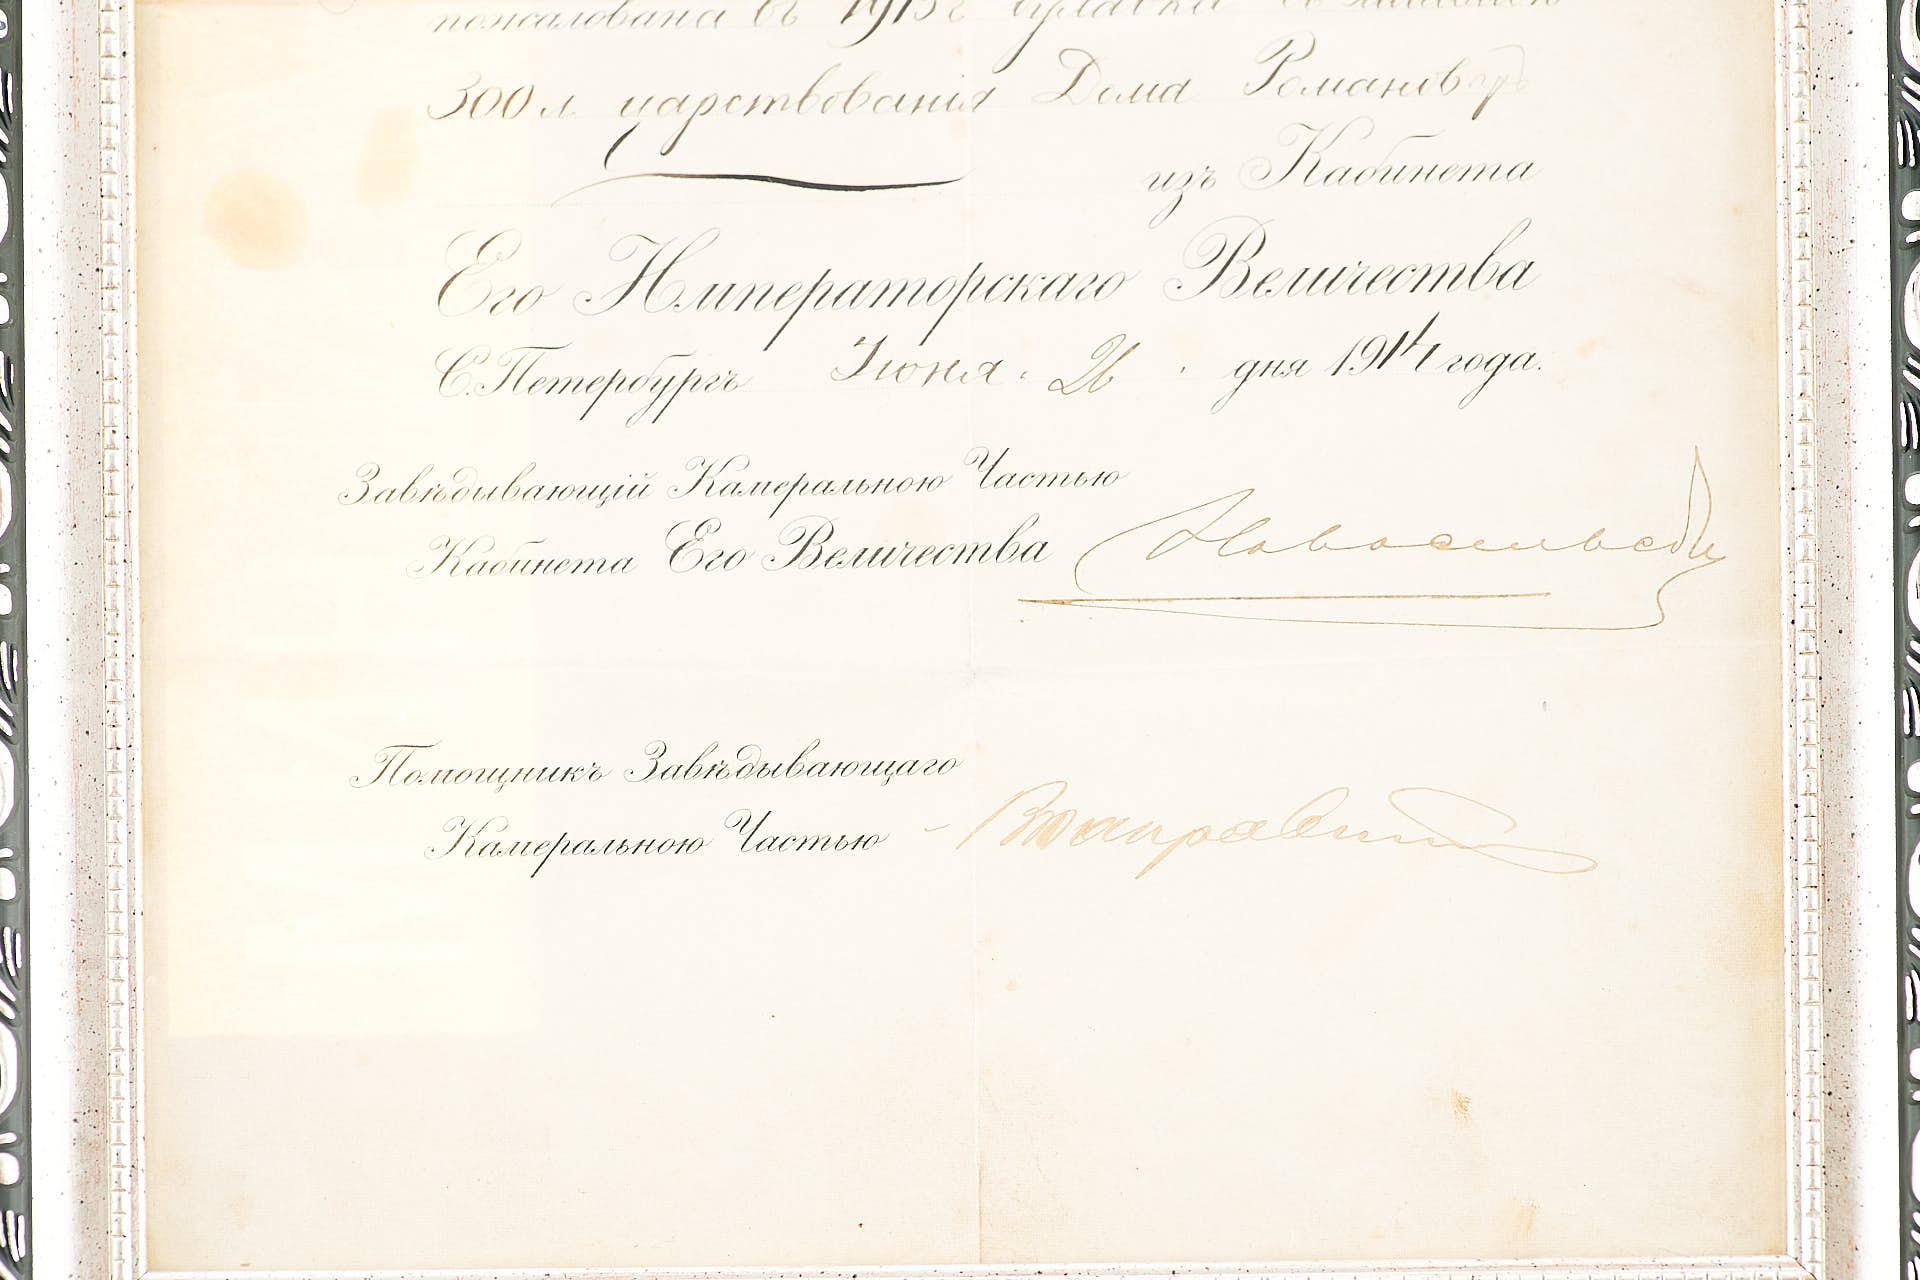 пожалована въ 1913 г булавка
300 л царствованія Дома Романовыхъ
изъ Кабинета
Его Императорскаго Величества
С.Петербургъ Іюня 26 дня 1914 года.
Завѣдывающій Камеральною Частью
Кабинета Его Величества Новосельскій
Помощникъ Завѣдывающаго
Камеральною Частью